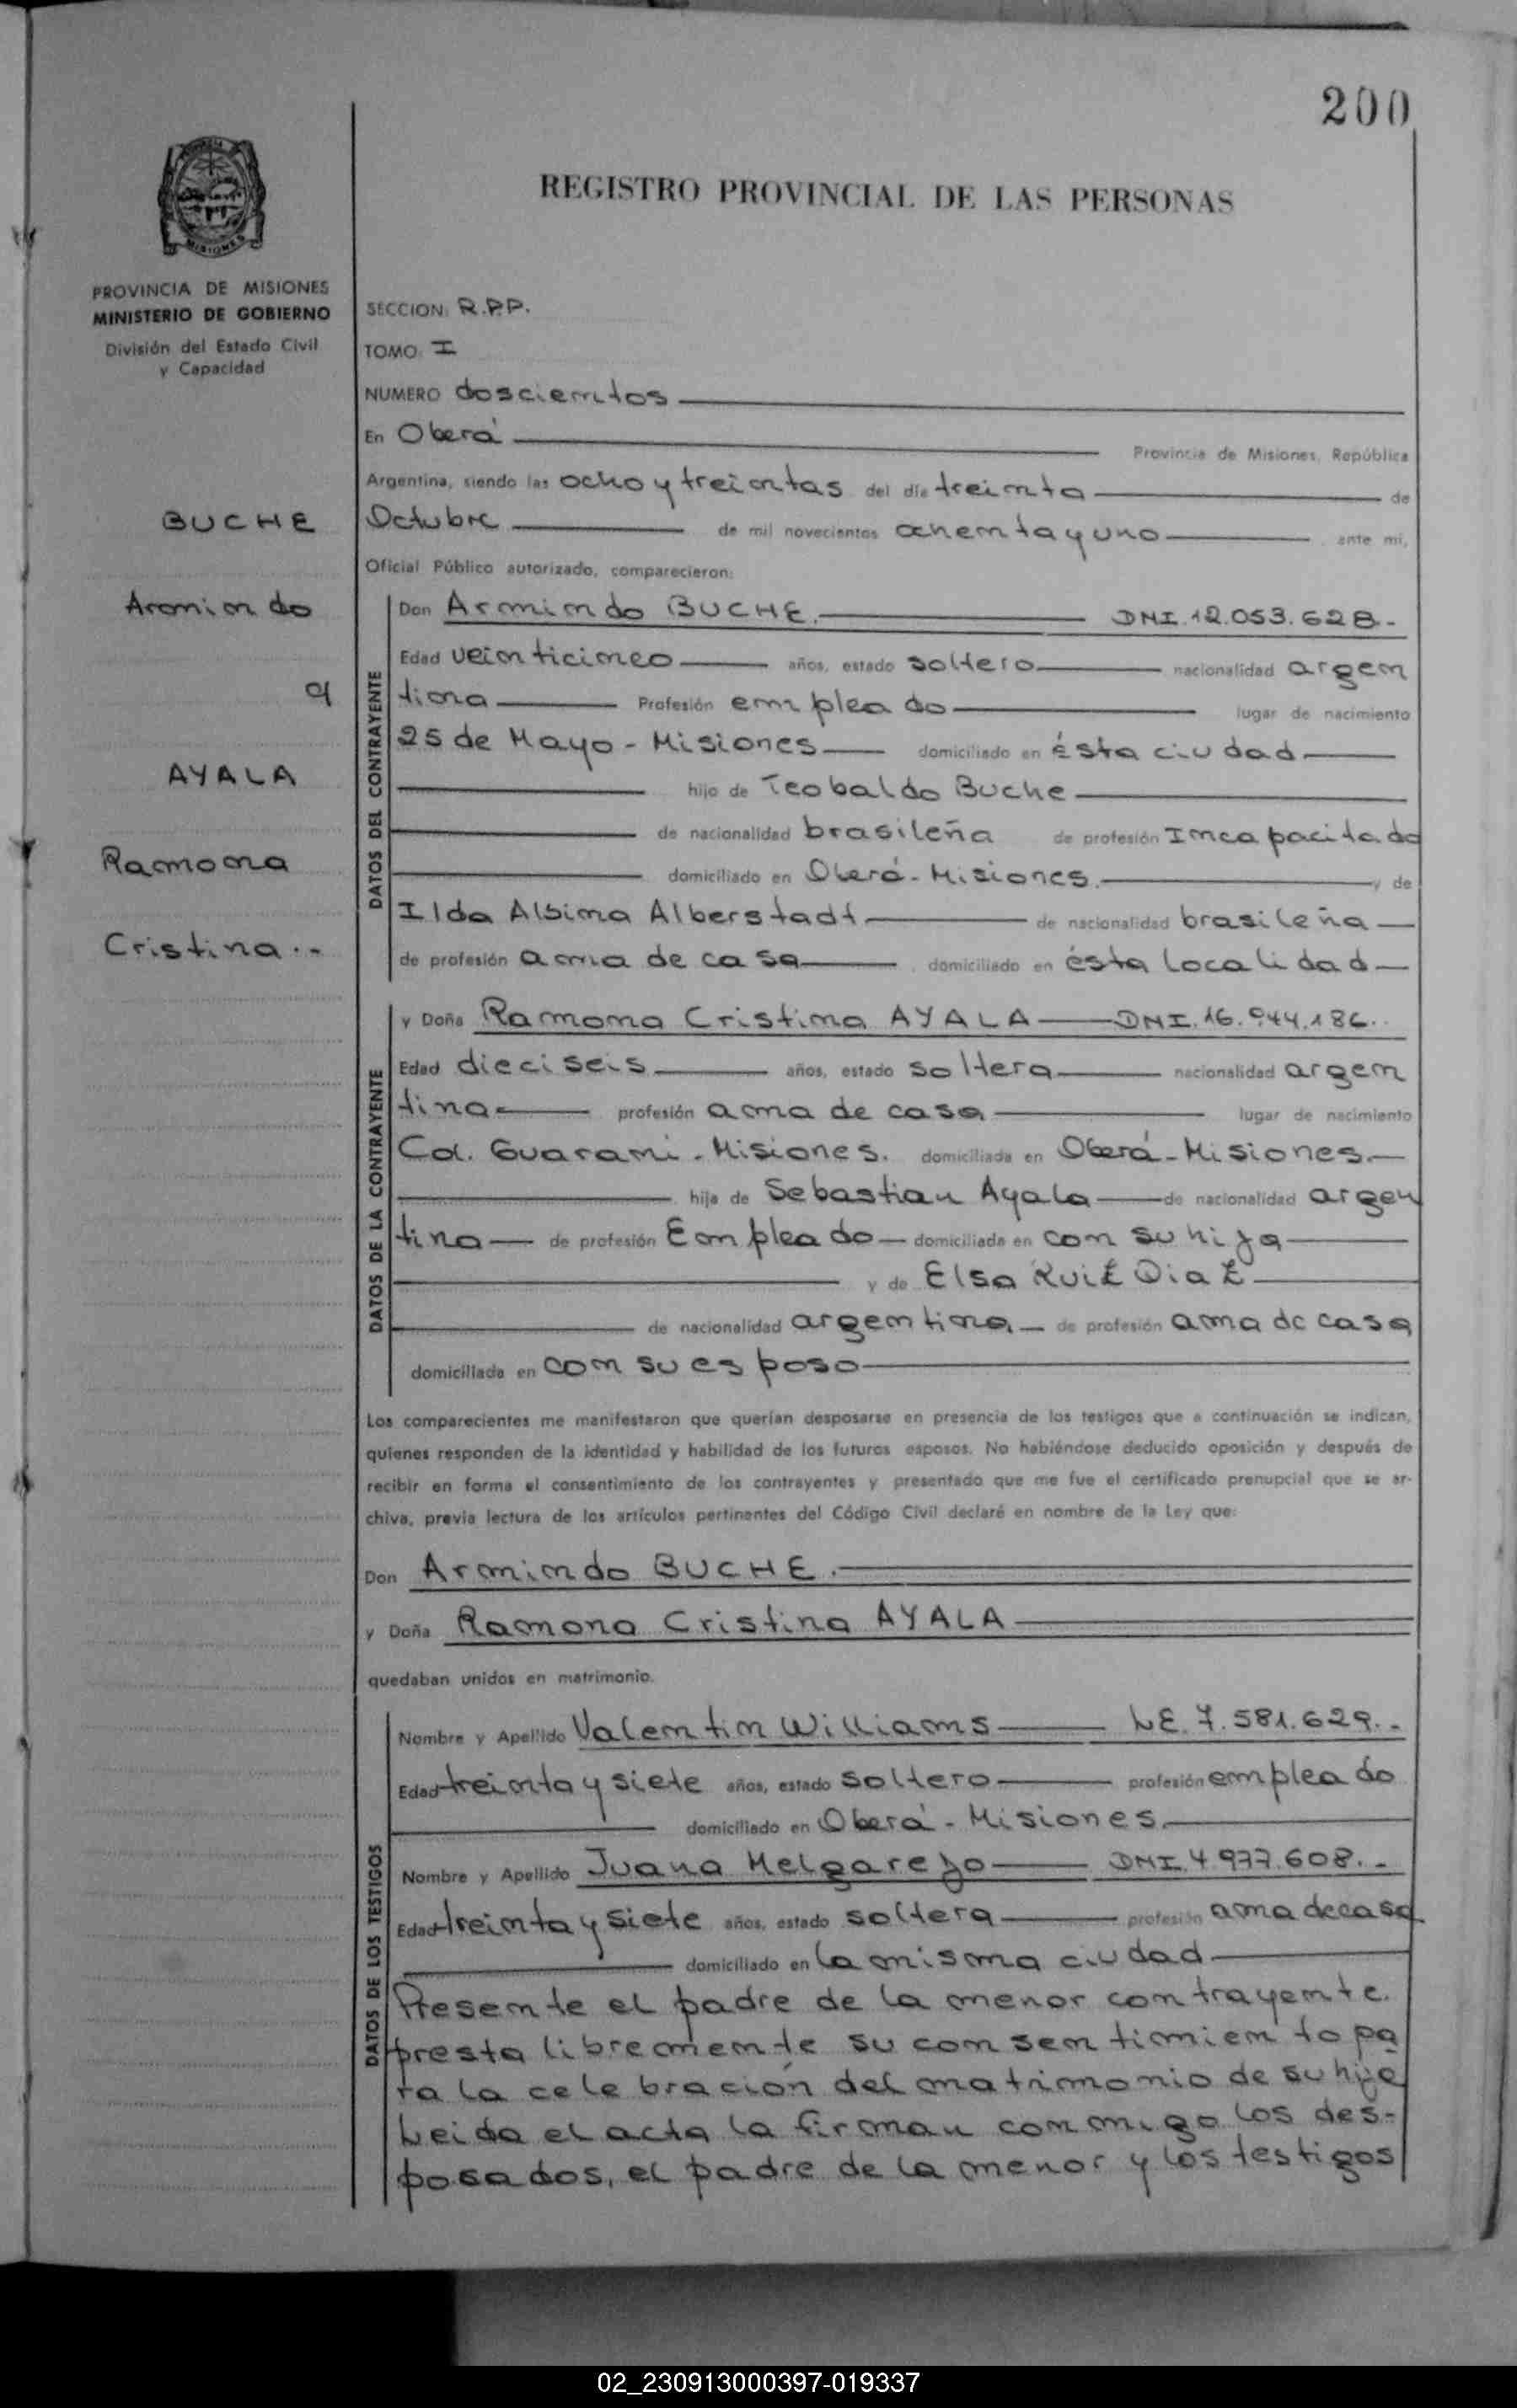 200
REGISTRO PROVINCIAL DE LAS PERSONAS
MISIONES
PROVINCIA DE MISIONES
MINISTERIO DE GOBIERNO
División del Estado Civil
y Capacidad
BUCHE
Armindo
q
AYALA
Ramona
Cristina.-
SECCION: R.P.P.
TOMO: I
NUMERO doscientos
En Oberá Provincia de Misiones, República
Argentina, siendo las ocho y treintas del día treinta de
Octubre de mil novecientos ochenta y uno ante mí,
Oficial Público autorizado, comparecieron:
DATOS DEL CONTRAYENTE
Don Armindo BUCHE. DNI. 12.053.628.-
Edad veinticinco años, estado soltero nacionalidad argen
tina Profesión empleado lugar de nacimiento
25 de Mayo - Misiones domiciliado en ésta ciudad
hijo de Teobaldo Buche
de nacionalidad brasileña de profesión Incapacitado
domiciliado en Oberá - Misiones. y de
Ilda Albina Alberstadt de nacionalidad brasileña
de profesión ama de casa domiciliado en ésta localidad
DATOS DE LA CONTRAYENTE
y Doña Ramona Cristina AYALA DNI. 16.944.186..
Edad dieciseis años, estado soltera nacionalidad argen
tina profesión ama de casa lugar de nacimiento
Col. Guarani - Misiones. domiciliada en Oberá - Misiones.
hija de Sebastian Ayala de nacionalidad argen
tina de profesión Empleado domiciliada en con su hija
y de Elsa Ruiz Diaz
de nacionalidad argentina de profesión ama de casa
domiciliada en con su esposo
Los comparecientes me manifestaron que querían desposarse en presencia de los testigos que a continuación se indican,
quienes responden de la identidad y habilidad de los futuros esposos. No habiéndose deducido oposición y después de
recibir en forma el consentimiento de los contrayentes y presentado que me fue el certificado prenupcial que se ar-
chiva, previa lectura de los artículos pertinentes del Código Civil declaré en nombre de la Ley que:
Don Armindo BUCHE.
y Doña Ramona Cristina AYALA
quedaban unidos en matrimonio.
DATOS DE LOS TESTIGOS
Nombre y Apellido Valentin Williams LE. 7.581.629..-
Edad treinta y siete años, estado soltero profesión empleado
domiciliado en Oberá - Misiones.
Nombre y Apellido Juana Melgarejo DNI. 4.977.608..-
Edad treinta y siete años, estado soltera profesión ama de casa
domiciliado en la misma ciudad
Presente el padre de la menor contrayente.
presta libremente su consentimiento pa
ra la celebración del matrimonio de su hija
Leida el acta la firman conmigo los des-
posados, el padre de la menor y los testigos
02_230913000397-019337